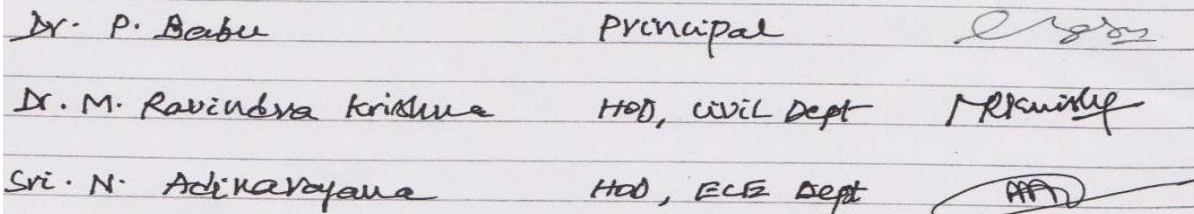 Dr. P. Babu Principal
Dr. M. Ravindra Krishna HOD, CIVIL Dept
Sri. N. Adinarayana HOD, ECE Dept